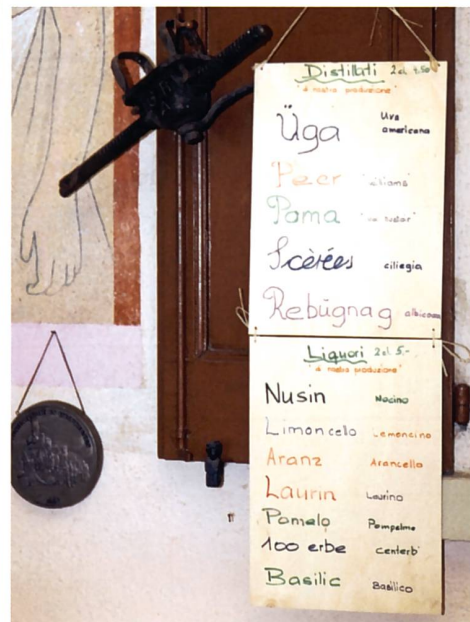 Distillati 2 cl
di nostra produzione
Üga Uva americana
Pecr
Poma
Scérées ciliegia
Rebügnag albicocca
Liquori 2 cl 5.-
di nostra produzione
Nusin Nocino
Limoncello Lemoncino
Aranz Arancello
Laurin Laurino
Pomelo Pompelmo
100 erbe centerb'
Basilic Basilico